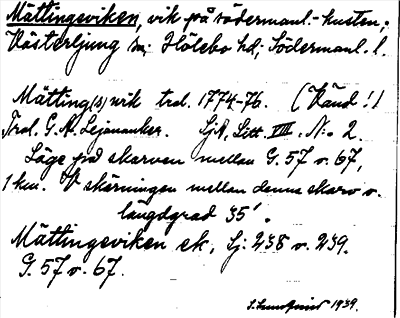 Mättingeviken, vik på södermanl.-kusten;
Västerljung sn; Hölebo hd; Södermanl. l.
Mätting(s)wik trol. 1774-76. (Känd!)
Trol. G. A. Leijonancker. SjK, Litt. VIII. N:o 2.
Läge på skarven mellan G. 57 o. 67,
1 km. V skärningen mellan denna skarv o.
längdgrad 35'.
Mättingeviken ek. Sj: 238 o. 239.
G. 57 o. 67.
S. Lundqvist 1939.